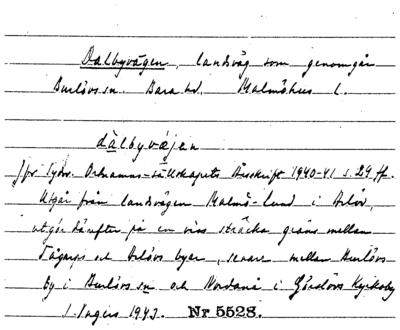 Dalbyvägen, landsväg som genomgår
Burlövs sn. Bara hd. Malmöhus l.
dàlbyvä́jen
Jfr Sydsv. Ortnamns-sällskapets Årsskrift 1940-41 s. 29 ff.
Utgår från landsvägen Malmö-Lund i Arlöv,
utgör därefter på en viss sträcka gräns mellan
Tågarps och Arlövs byar, senare mellan Burlövs
by i Burlövs sn och Nordanå i Görslövs
S. Ingers 1943. Nr 5528.